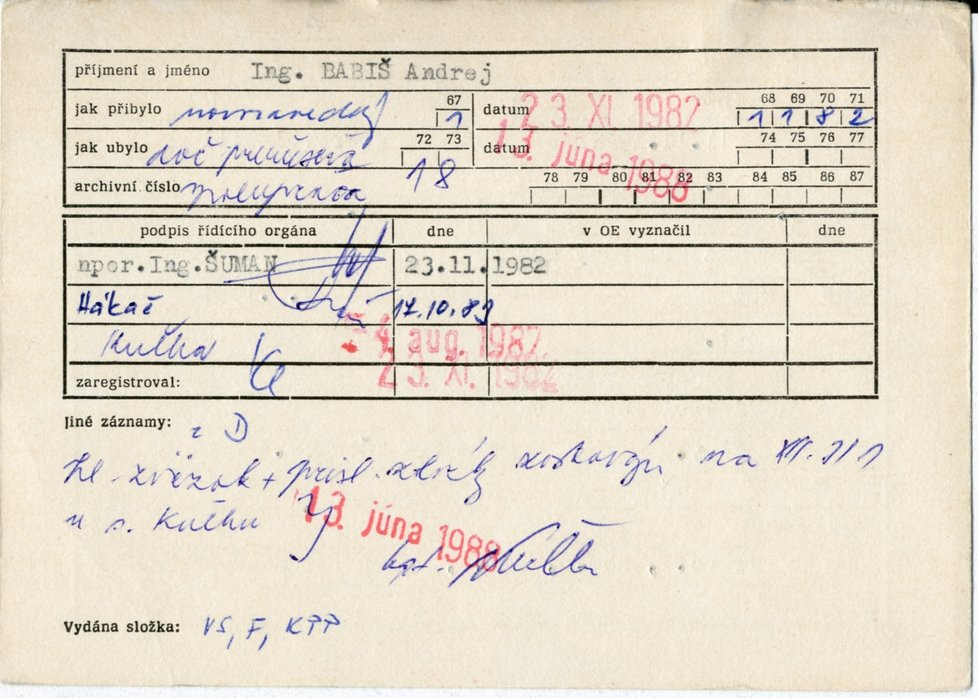 příjmení a jméno Ing. BABIŠ Andrej
jak přibylo 67 1 datum 23 XI. 1982 68 69 70 71 1 1 8 2
jak ubylo doč prerušená 72 73 datum 13. júna 1988 74 75 76 77
archivní číslo 18 78 79 80 81 82 83 84 85 86 87
podpis řídícího orgána dne v OE vyznačil dne
npor.Ing.ŠUMAN 23.11.1982
Hákač 17.10.83
Kulha 4 aug. 1987
zaregistroval: 23. XI. 1982
Jiné záznamy: D
zväzok + na
u s. Kulhu 13. júna 1988
Vydána složka: VS, F, KPP